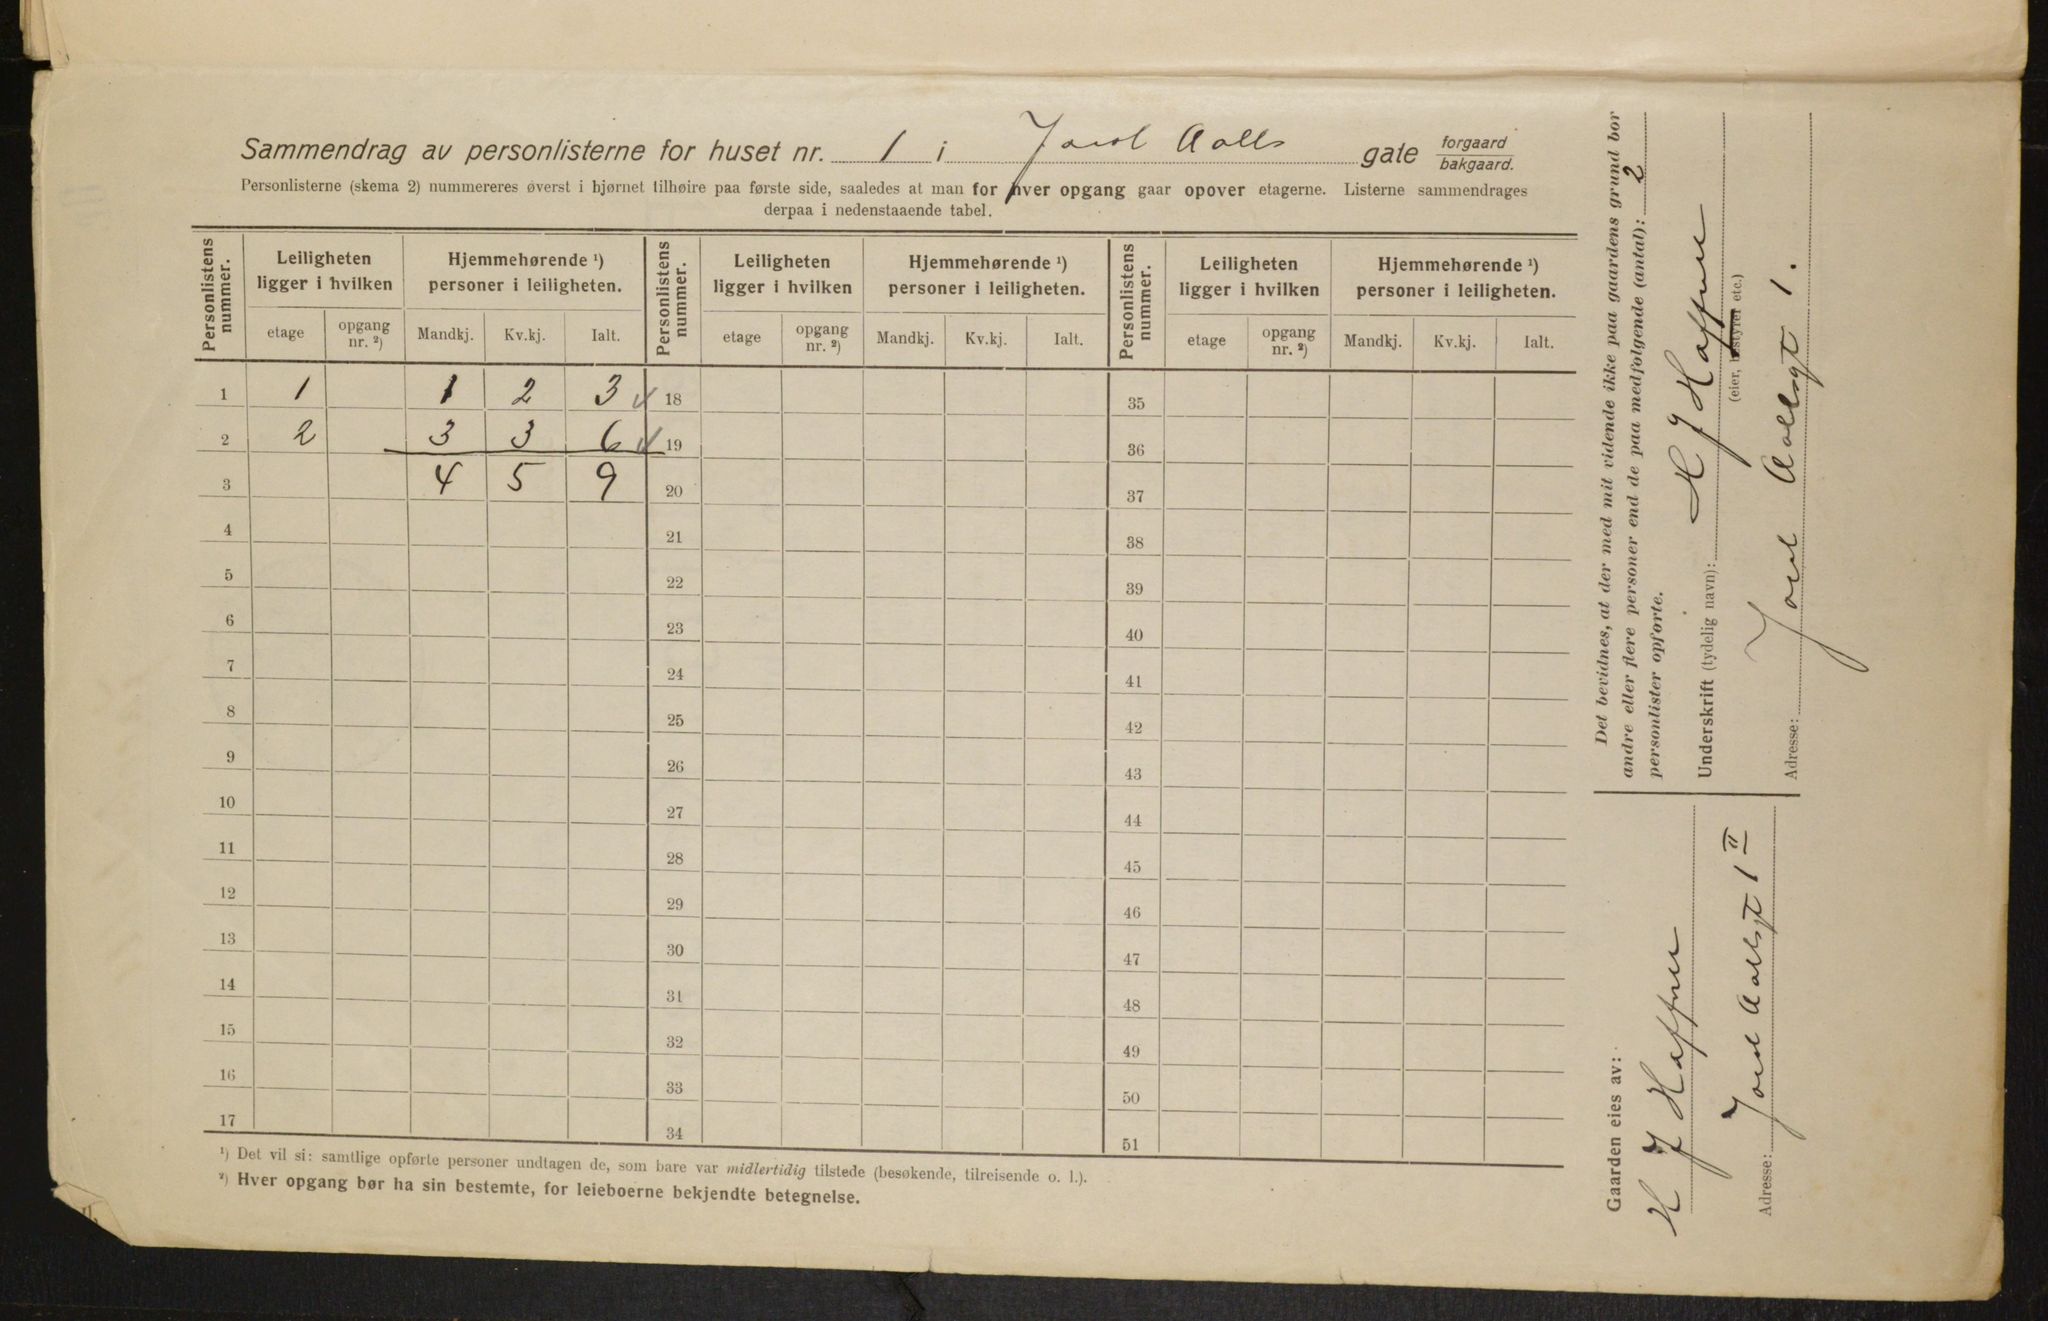 Sammendrag av personlisterne for huset nr. 1 i Jacob Aalls gate forgaard bakgaard.
Personlisterne (skema 2) nummereres øverst i hjørnet tilhøire paa første side, saaledes at man for hver opgang gaar opover etagerne. Listerne sammendrages
derpaa i nedenstaaende tabel.
Personlistens nummer. Leiligheten ligger i hvilken Hjemmehørende ¹) personer i leiligheten. Personlistens nummer. Leiligheten ligger i hvilken Hjemmehørende ¹) personer i leiligheten. Personlistens nummer. Leiligheten ligger i hvilken Hjemmehørende ¹) personer i leiligheten.
etage opgang nr. ²) Mandkj. Kv.kj. Ialt. etage opgang nr. ²) Mandkj. Kv.kj. Ialt. etage opgang nr. ²) Mandkj. Kv.kj. Ialt.
1 1 1 2 3 18 35
2 2 3 3 6 19 36
3 4 5 9 20 37
4 21 38
5 22 39
6 23 40
7 24 41
8 25 42
9 26 43
10 27 44
11 28 45
12 29 46
13 30 47
14 31 48
15 32 49
16 33 50
17 34 51
¹) Det vil si: samtlige opførte personer undtagen de, som bare var midlertidig tilstede (besøkende, tilreisende o. l.).
²) Hver opgang bør ha sin bestemte, for leieboerne bekjendte betegnelse.
Det bevidnes, at der med mit vidende ikke paa gaardens grund bor
andre eller flere personer end de paa medfølgende (antal): 2
personlister opførte.
Underskrift (tydelig navn): H J Haffner
(eier, bestyrer etc.)
Adresse: Jacob Aallsgt 1.
Gaarden eies av:
H J Haffner
Adresse: Jacob Aallsgt 1 II